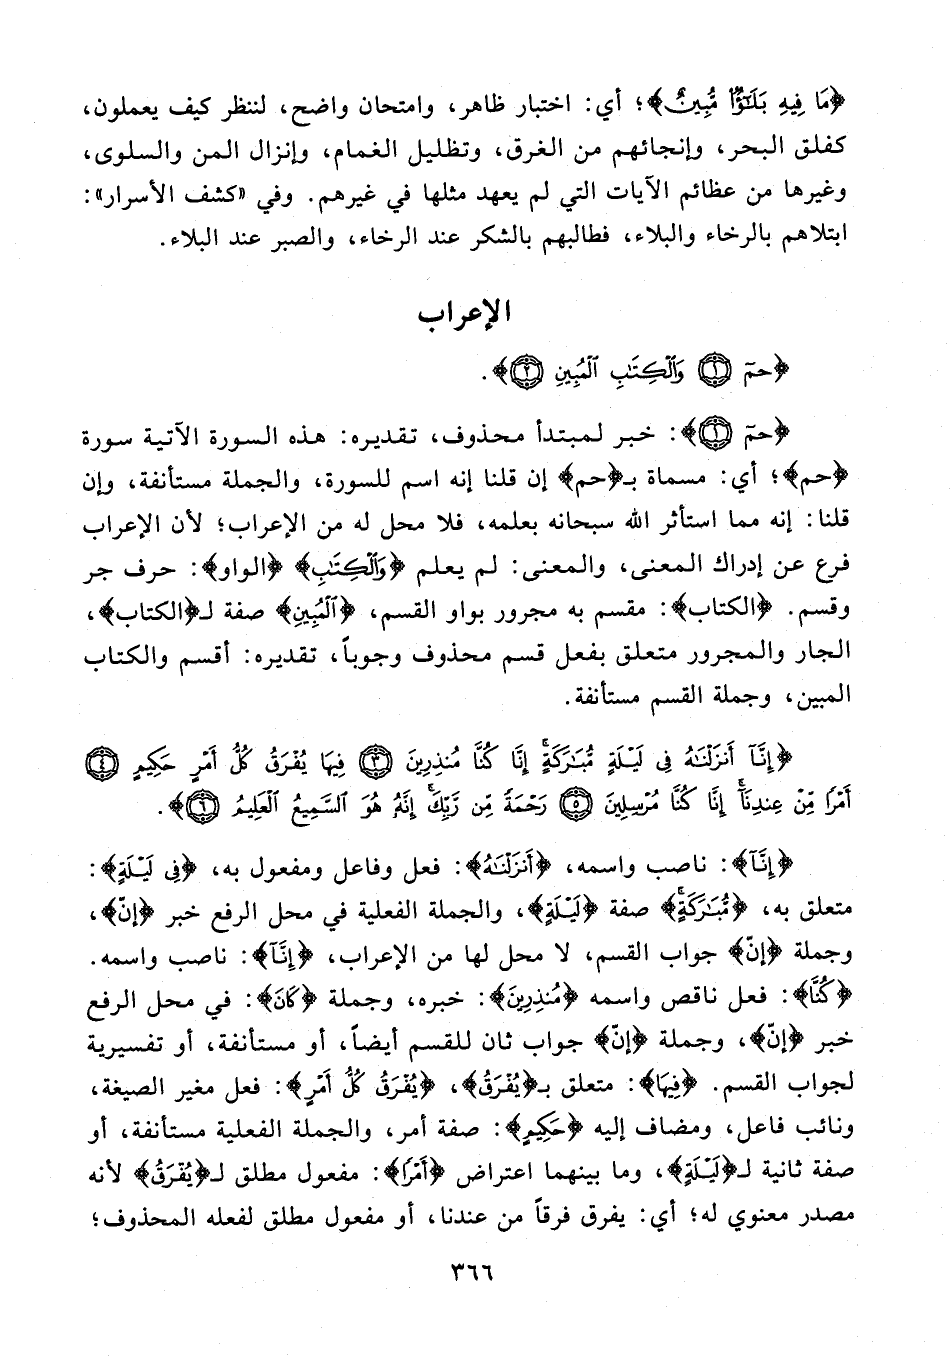 ﴿مَا فِيهِ بَلَٰٓؤٌا۟ مُّبِينٌ﴾؛ أي: اختبار ظاهر، وامتحان واضح، لننظر كيف يعملون،
كفلق البحر، وإنجائهم من الغرق، وتظليل الغمام، وإنزال المن والسلوى،
وغيرها من عظائم الآيات التي لم يعهد مثلها في غيرهم. وفي «كشف الأسرار»:
ابتلاهم بالرخاء والبلاء، فطالبهم بالشكر عند الرخاء، والصبر عند البلاء.
الإعراب
﴿حمٓ ١ وَٱلْكِتَٰبِ ٱلْمُبِينِ ٢﴾.
﴿حمٓ ١﴾: خبر لمبتدأ محذوف، تقديره: هذه السورة الآتية سورة
﴿حم﴾؛ أي: مسماة بـ﴿حم﴾ إن قلنا إنه اسم للسورة، والجملة مستأنفة، وإن
قلنا: إنه مما استأثر الله سبحانه بعلمه، فلا محل له من الإعراب؛ لأن الإعراب
فرع عن إدراك المعنى، والمعنى: لم يعلم ﴿وَٱلْكِتَٰبِ﴾ ﴿الواو﴾: حرف جر
وقسم. ﴿الكتاب﴾: مقسم به مجرور بواو القسم، ﴿ٱلْمُبِينِ﴾ صفة لـ﴿الكتاب﴾،
الجار والمجرور متعلق بفعل قسم محذوف وجوباً، تقديره: أقسم والكتاب
المبين، وجملة القسم مستأنفة.
﴿إِنَّآ أَنزَلْنَٰهُ فِى لَيْلَةٍ مُّبَٰرَكَةٍ ۚ إِنَّا كُنَّا مُنذِرِينَ ٣ فِيهَا يُفْرَقُ كُلُّ أَمْرٍ حَكِيمٍ ٤
أَمْرًا مِّنْ عِندِنَآ ۚ إِنَّا كُنَّا مُرْسِلِينَ ٥ رَحْمَةً مِّن رَّبِّكَ ۚ إِنَّهُۥ هُوَ ٱلسَّمِيعُ ٱلْعَلِيمُ ٦﴾.
﴿إِنَّآ﴾: ناصب واسمه، ﴿أَنزَلْنَٰهُ﴾: فعل وفاعل ومفعول به، ﴿فِى لَيْلَةٍ﴾:
متعلق به، ﴿مُّبَٰرَكَةٍ ۚ﴾ صفة ﴿لَيْلَةٍ﴾، والجملة الفعلية في محل الرفع خبر ﴿إنّ﴾،
وجملة ﴿إنّ﴾ جواب القسم، لا محل لها من الإعراب، ﴿إِنَّآ﴾: ناصب واسمه.
﴿كُنَّا﴾: فعل ناقص واسمه ﴿مُنذِرِينَ﴾: خبره، وجملة ﴿كَانَ﴾: في محل الرفع
خبر ﴿إنّ﴾، وجملة ﴿إنّ﴾ جواب ثان للقسم أيضاً، أو مستأنفة، أو تفسيرية
لجواب القسم. ﴿فِيهَا﴾: متعلق بـ﴿يُفْرَقُ﴾، ﴿يُفْرَقُ كُلُّ أَمْرٍ﴾: فعل مغير الصيغة،
ونائب فاعل، ومضاف إليه ﴿حَكِيمٍ﴾: صفة أمر، والجملة الفعلية مستأنفة، أو
صفة ثانية لـ﴿لَيْلَةٍ﴾، وما بينهما اعتراض ﴿أَمْرًا﴾: مفعول مطلق لـ﴿يُفْرَقُ﴾ لأنه
مصدر معنوي له؛ أي: يفرق فرقاً من عندنا، أو مفعول مطلق لفعله المحذوف؛
٣٦٦